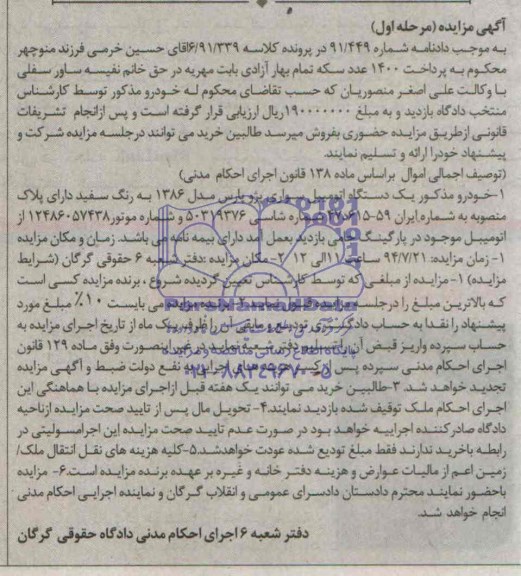 آگهی مزایده (مرحله اول)
به موجب دادنامه شماره ۹۱/۴۴۹ در پرونده کلاسه ۶/۹۱/۳۳۹اقای حسین خرمی فرزند منوچهر
محکوم به پرداخت ۱۴۰۰ عدد سکه تمام بهار آزادی بابت مهریه در حق خانم نفیسه ساور سفلی
با وکالت علی اصغر منصوریان که حسب تقاضای محکوم له خودرو مذکور توسط کارشناس
منتخب دادگاه بازدید و به مبلغ ۱۹۰۰۰۰۰۰۰ریال ارزیابی قرار گرفته است و پس ازانجام تشریفات
قانونی ازطریق مزایده حضوری بفروش میرسد طالبین خرید می توانند درجلسه مزایده شرکت و
پیشنهاد خودرا ارائه و تسلیم نمایند.
(توصیف اجمالی اموال براساس ماده ۱۳۸ قانون اجرای احکام مدنی)
۱-خودرو مذکور یک دستگاه اتومبیل سواری پژو پارس مدل ۱۳۸۶ به رنگ سفید دارای پلاک
منصوبه به شماره ایران ۵۹-۶۱۵ شماره شاسی ۵۰۳۱۹۳۷۶ و شماره موتور۱۲۴۸۶۰۵۷۴۳۸ از
اتومبیل موجود در پارکینگ بازدید بعمل آمد دارای بیمه نامه می باشد. زمان و مکان مزایده
۱- زمان مزایده: ۹۴/۷/۲۱ ساعت ۱۱الی ۱۲ ۲-مکان مزایده :دفتر شعبه ۶ حقوقی گرگان (شرایط
مزایده) ۱-مزایده از مبلغی که توسط کارشناس تعیین گردیده شروع ، برنده مزایده کسی است
که بالاترین مبلغ را درجلسه مزایده قبول نماید ۲-برنده مزایده می بایست ۱۰٪ مبلغ مورد
پیشنهاد را نقدا به حساب دادگستری تودیع و مابقی آن را ظرف یک ماه از تاریخ اجرای مزایده به
حساب سپرده واریز قبض آن را تسلیم دفتر شعبه نماید در غیر اینصورت وفق ماده ۱۲۹ قانون
اجرای احکام مدنی سپرده پس از کسر هزینه های اجرایی به نفع دولت ضبط و آگهی مزایده
تجدید خواهد شد. ۳-طالبین خرید می توانند یک هفته قبل ازاجرای مزایده با هماهنگی این
اجرای احکام ملک توقیف شده بازدید نمایند.۴- تحویل مال پس از تایید صحت مزایده ازناحیه
دادگاه صادرکننده اجراییه خواهد بود در صورت عدم تایید صحت مزایده این اجرامسولیتی در
رابطه باخرید ندارند فقط مبلغ تودیع شده عودت خواهدشد.۵-کلیه هزینه های نقل انتقال ملک/
زمین اعم از مالیات عوارض و هزینه دفتر خانه و غیره بر عهده برنده مزایده است.۶- مزایده
باحضور نمایند محترم دادستان دادسرای عمومی و انقلاب گرگان و نماینده اجرایی احکام مدنی
انجام خواهد شد.
دفتر شعبه ۶ اجرای احکام مدنی دادگاه حقوقی گرگان
پایگاه اطلاع رسانی مناقصه و مزایده
۰۲۱-۸۸۳۴۹۶۷۰-۵